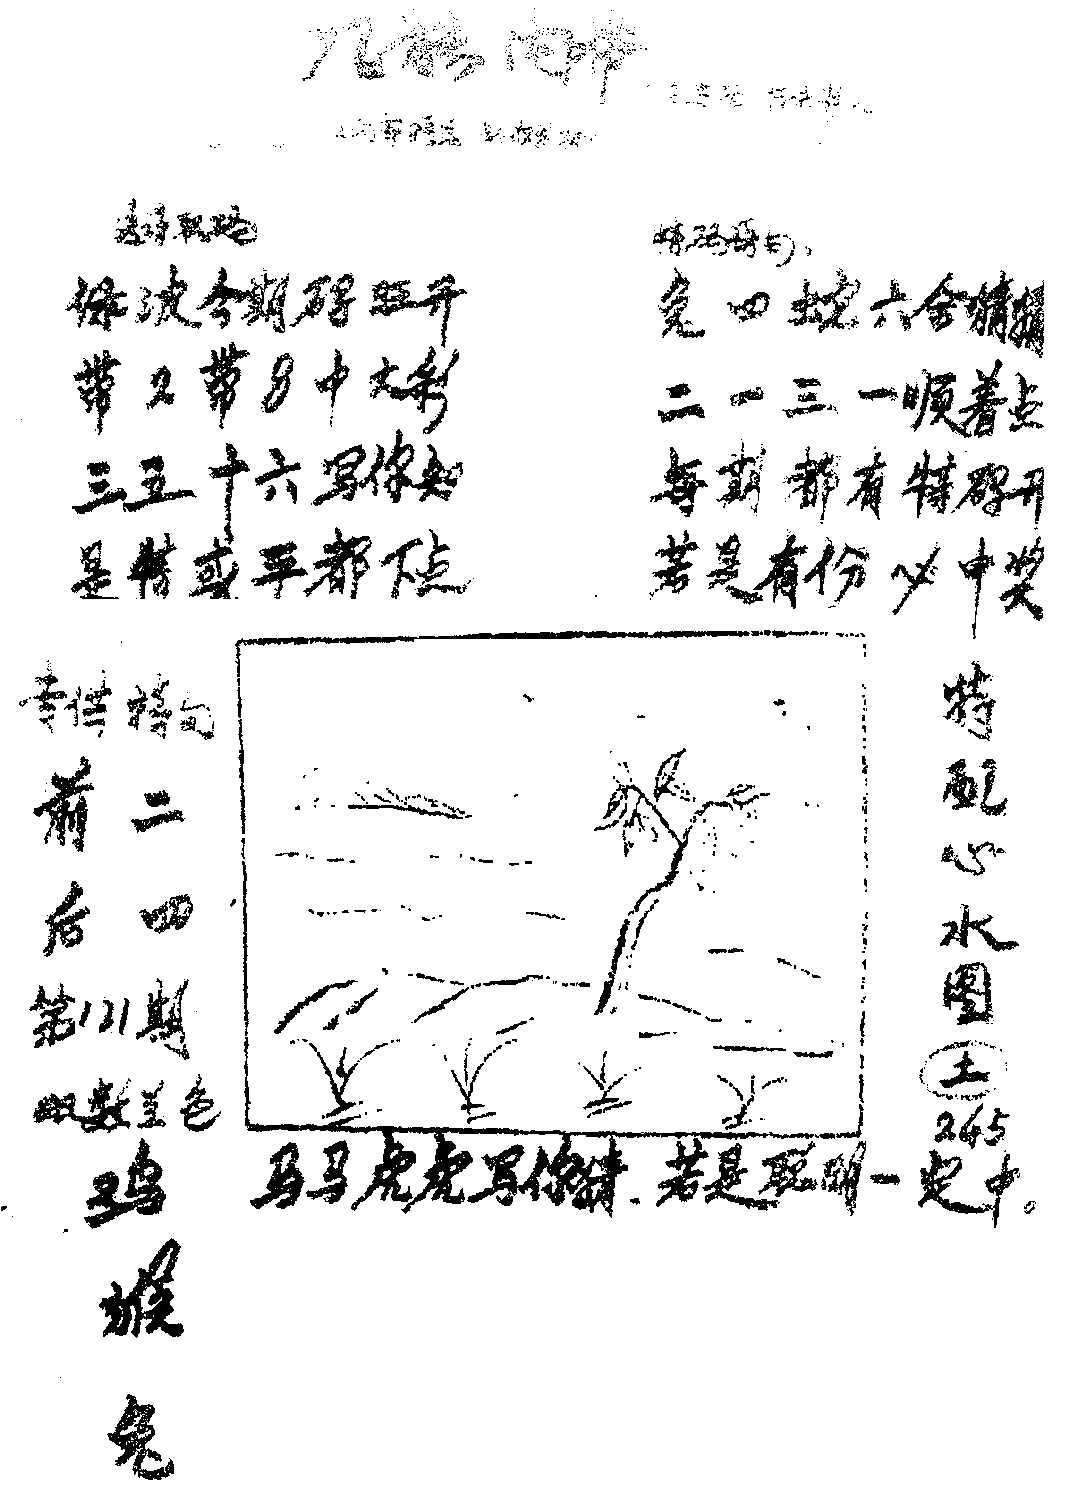 内带
保波今期码照开
带2带8中大彩
三五十六写你知
是特或平都下点
兔四蛇六金猜猜
二一三一顺着点
每期都有特码开
若是有份必中奖
前二
后四
第121期
双数兰色
鸡
猴
兔
特配心水图
土
245
马马虎虎写你猜.若是聪明一定中。